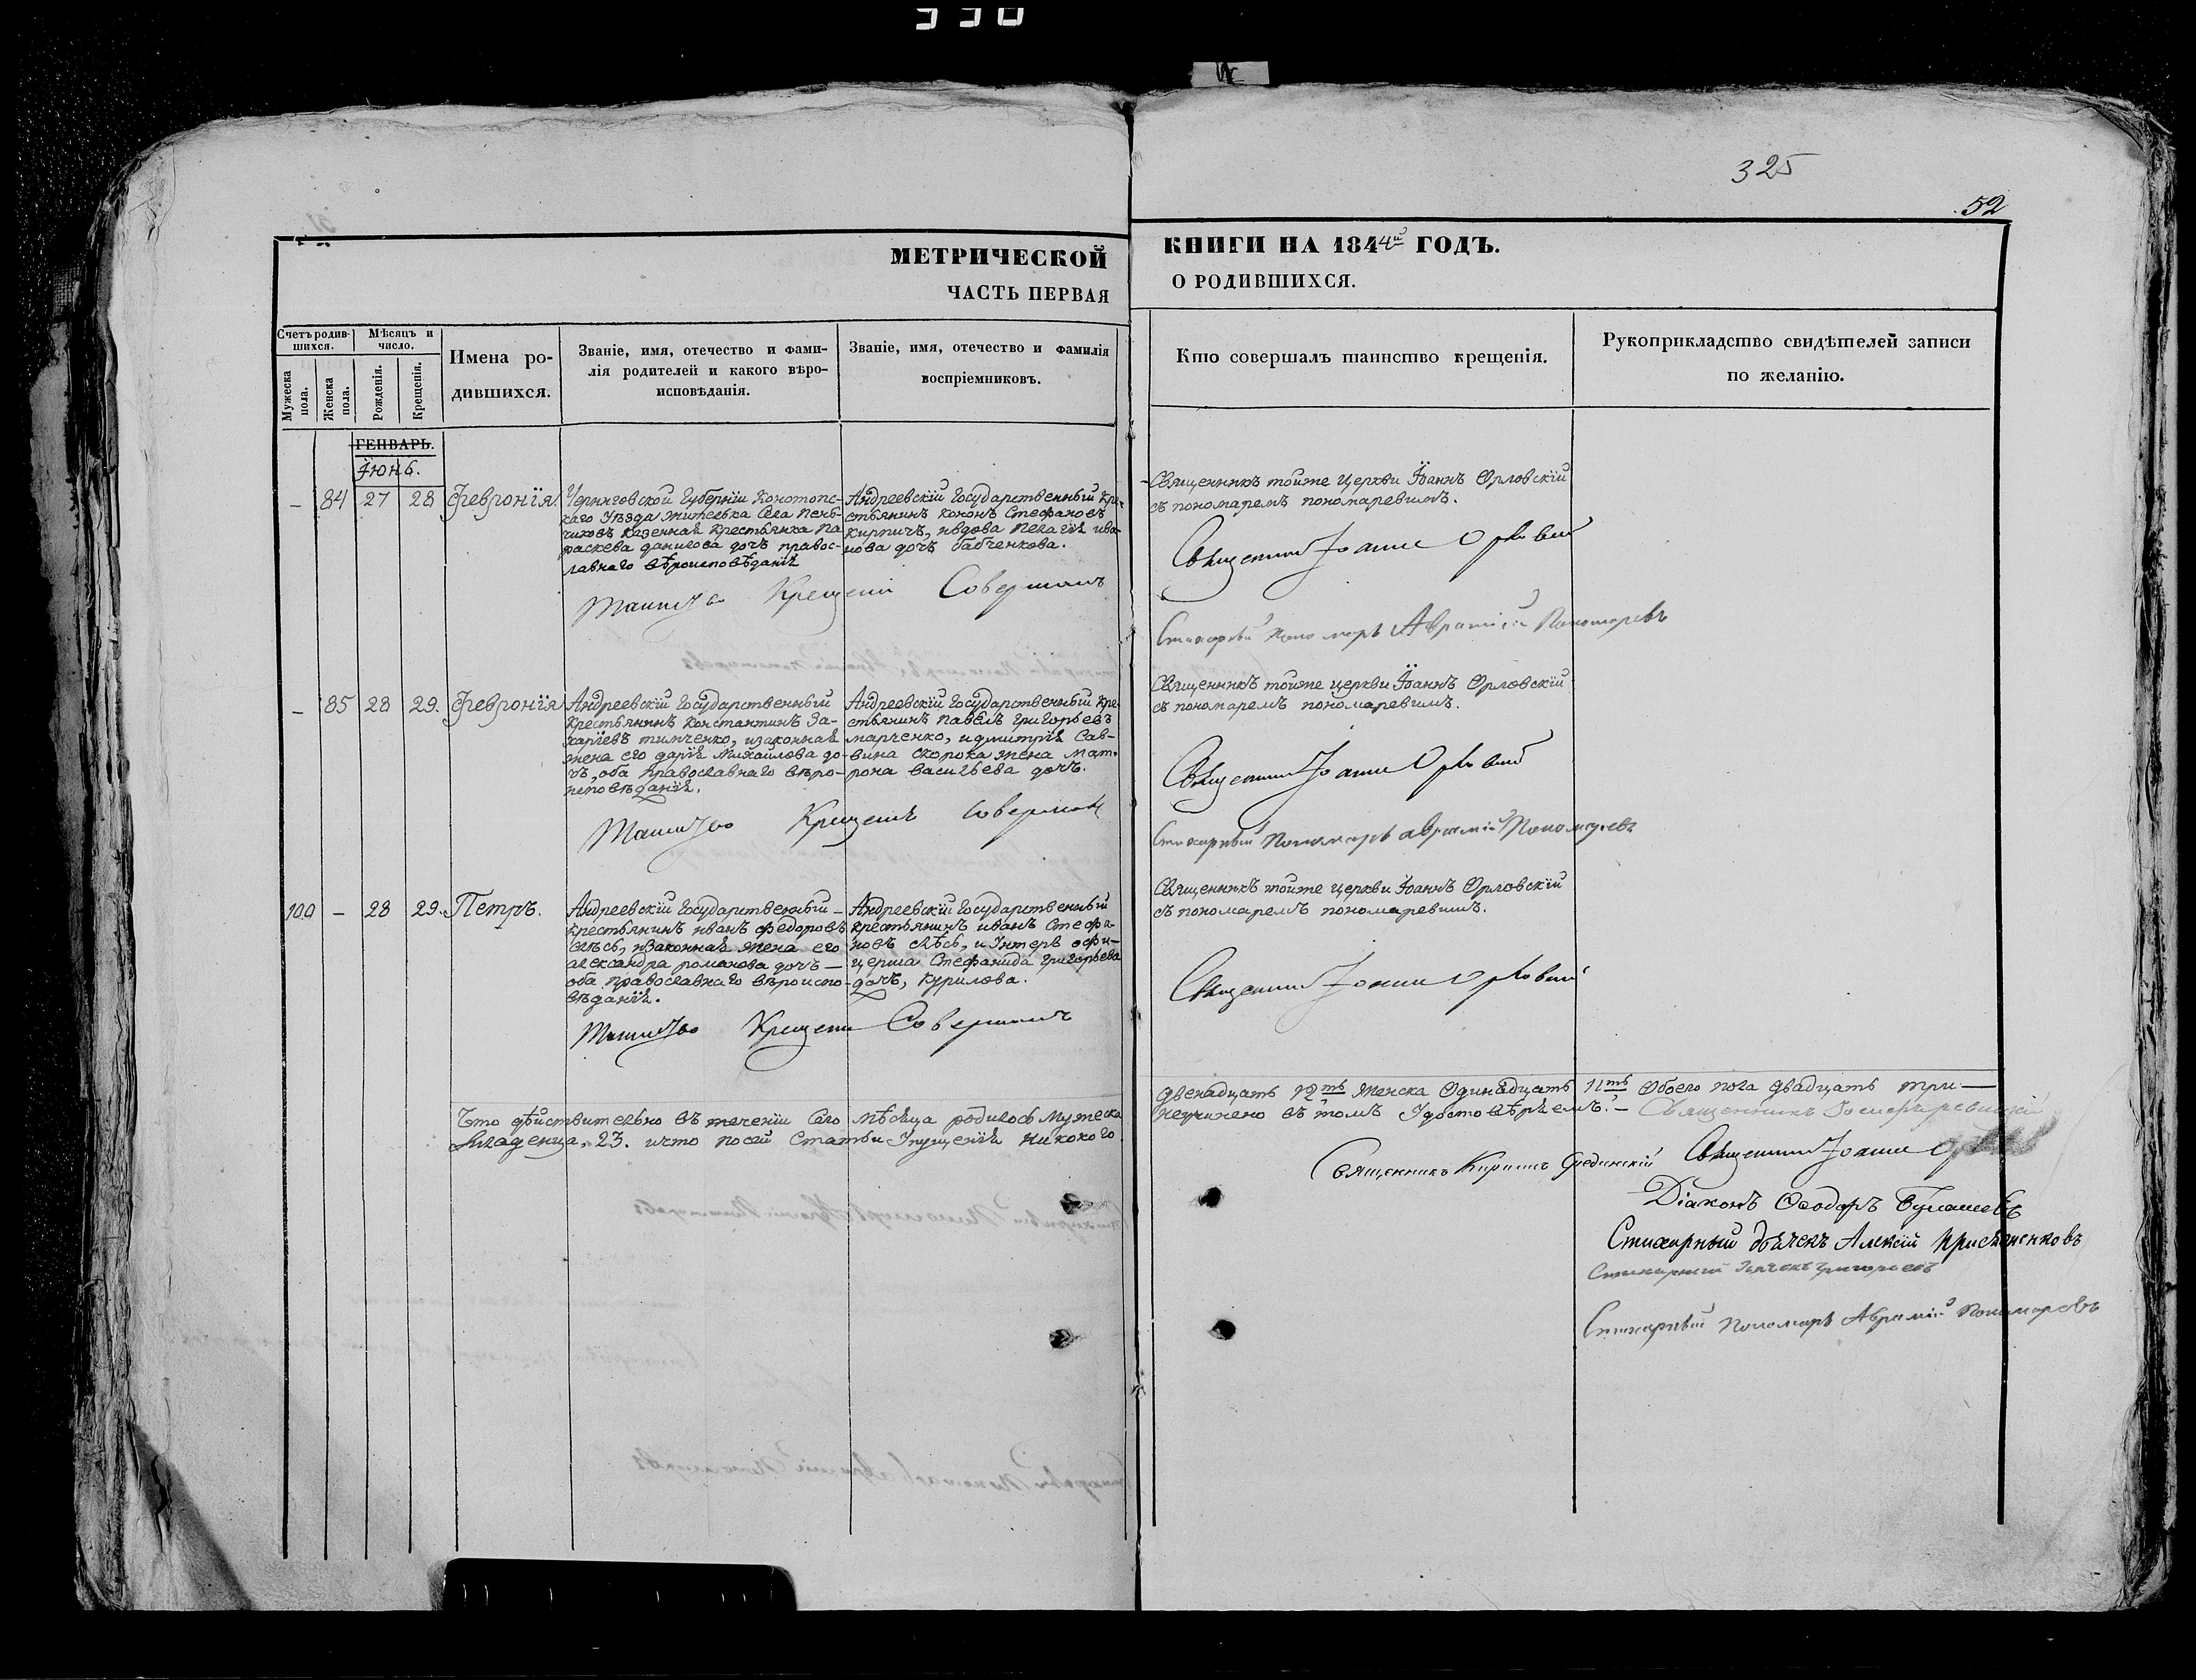 325
52
МЕТРИЧЕСКОЙ
ЧАСТЬ ПЕРВАЯ
КНИГИ НА 1844й ГОДЪ.
О РОДИВШИХСЯ.
Счетъ родив-
шихся.
Мужеска пола.
Женска пола.
Мѣсяцъ и
число.
Рожденія.
Крещенія.
Имена ро-
дившихся.
Званіе, имя, отечество и фами-
лія родителей и какого вѣро-
исповѣданія.
Званіе, имя, отечество и фамилія
воспріемниковъ.
Кто совершалъ таинство крещенія.
Рукоприкладство свидѣтелей записи
по желанію.
ГЕНВАРЬ.
Іюнь.
– 84 27 28 Февронїя.
Черниговской Губернїи Конотопс-
каго Уѣзда жителька Села
казенная Крестьянка Па
раскева данилова дочь правос-
лавнаго вѣроисповѣданїя
Андреевскїй Государственный Кре-
стьянинъ Кононъ Стефановъ
Кирпичъ, ивдова Пелагїя ива-
нова дочь Бабченкова.
Священникъ тойже Церкви Їоаннъ Орловскїй
съ пономаремъ пономаревымъ.
Таинство Крещенія Совершалъ
Священникъ Іоаннъ Орловскій
Стихарный пономарь Аврамій Пономаревъ
– 85 28 29. Февронїя
Андреевскїй Государственный
Крестьянинъ Константинъ За-
харїевъ тимченко, изаконная
жена его дарїя Михайлова до-
чь, оба Православнаго вѣро-
исповѣданїя.
Андреевскїй Государственный Кре-
стьянинъ павелъ григорьевъ
марченко, идмитрїя Сав-
вина Скорока жена Мат-
рона васильева дочь.
Священникъ тойже церкви Їоаннъ Орловскїй
съ пономаремъ пономаревымъ.
Таинство Крещенія Совершалъ
Священникъ Іоаннъ Орловскій
Стихарный Пономарь Аврамій Пономаревъ
100 – 28 29. Петръ.
Андреевскїй Государственный –
Крестьянинъ иванъ федоровъ
слѣсь, изаконная жена его
александра романова дочь –
оба Православнаго вѣроиспо-
вѣданїя.
Андреевскїй Государственный
Крестьянинъ иванъ Стефа-
новъ слѣсь, и Унтеръ офи-
церша Стефанида григорьева
дочь, Курилова.
Священникъ тойже церкви Їоаннъ Орловскїй
съ пономаремъ пономаревымъ.
Таинство Крещенія Совершалъ
Священникъ Іоаннъ Орловскій
Что дѣйствительно въ теченїи Сего мѣсяца родилось Мужеска
двенадцать 12ть Женска Одинадцать 11ть Обоего пола двадцать три –
Младенца, 23. ичто посей Статьи Упущенїя никокого
неучинено въ томъ Удостовѣряемъ. – Священникъ
Священникъ Кириллъ Священникъ Іоаннъ
Діаконъ Ѳеодоръ
Стихарный дьячекъ Алексій
Стихарный дьячекъ Григорьевъ
Стихарный Пономарь Аврамій Пономаревъ